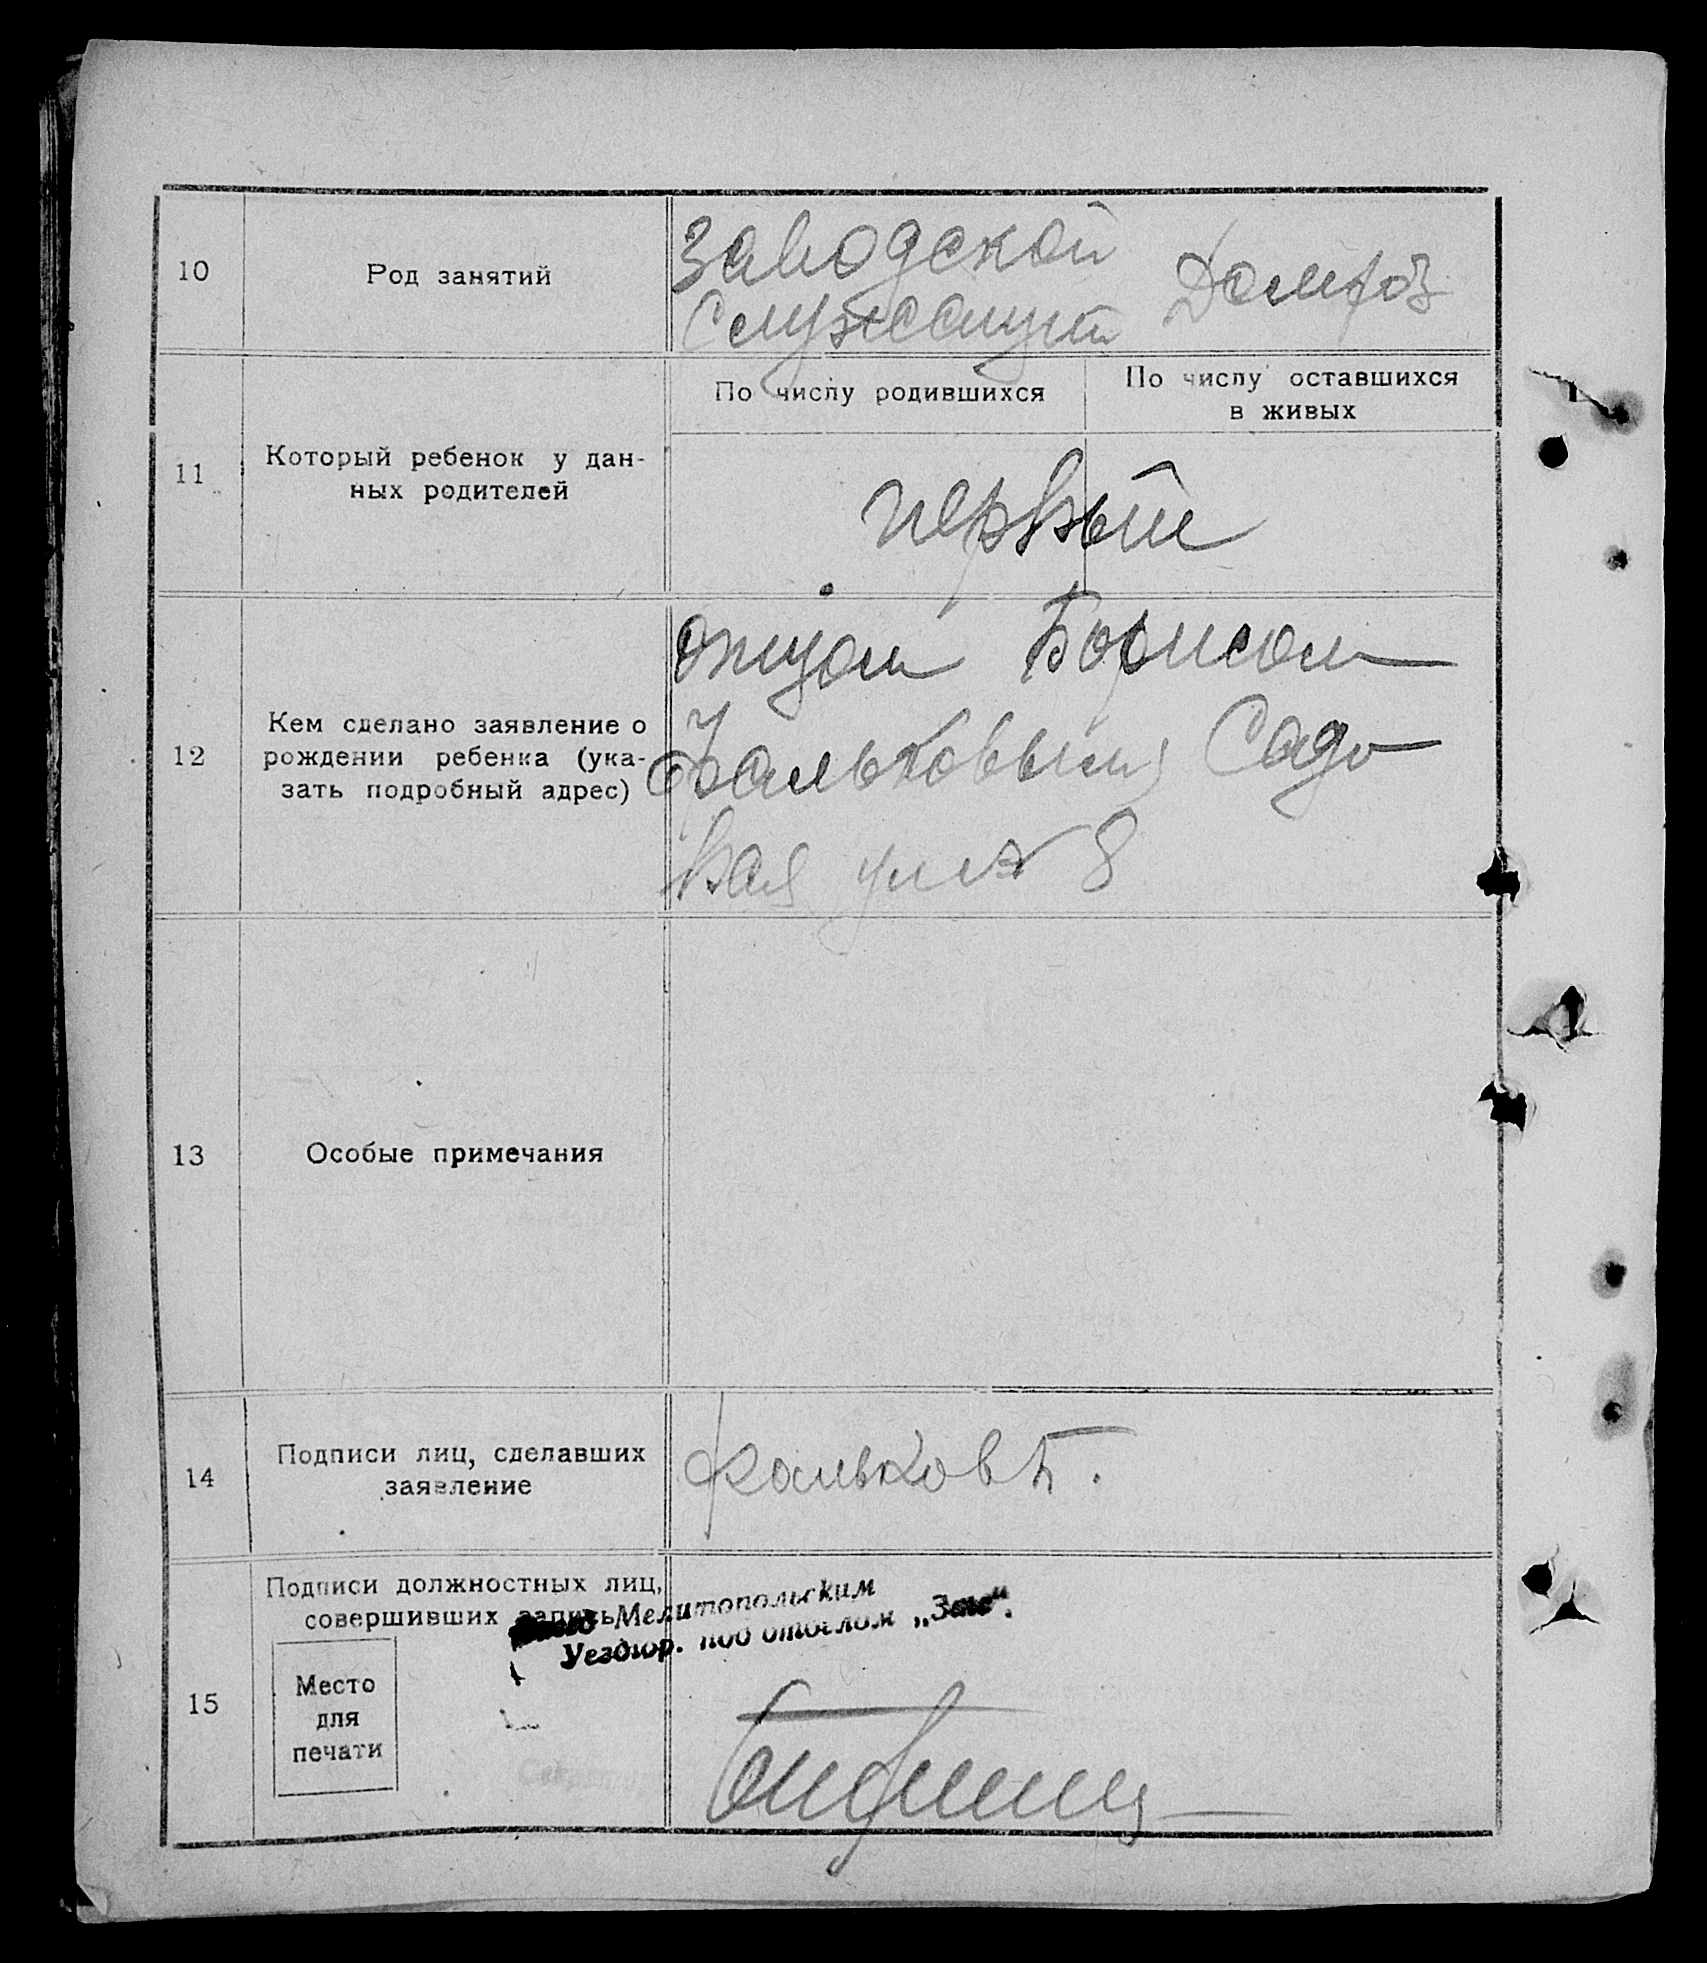 10
Род занятий
Заводской
служащий
Домхоз
11
Который ребенок у дан-
ных родителей
По числу родившихся
По числу оставшихся
в живых
первый
12
Кем сделано заявление о
рождении ребенка (ука-
зать подробный адрес)
отцом Борисом
Фальковым Садо
вая ул № 8
13
Особые примечания
14
Подписи лиц, сделавших
заявление
Фальков Б.
15
Подписи должностных лиц,
совершивших запись
Мелитопольским
под отделом „Загс“.
Место
для
печати